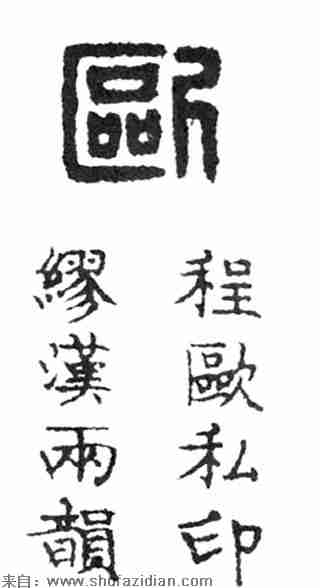 歐
程歐私印
繆漢兩韻
来自：www.shufazidian.com